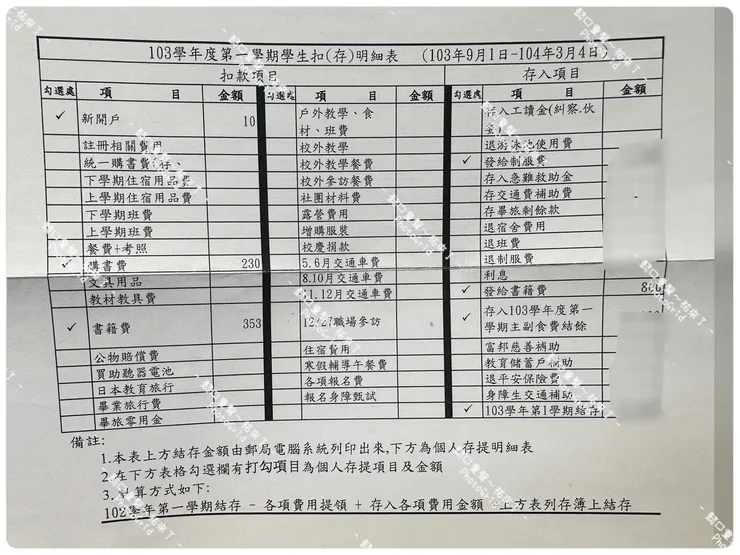 103學年度第一學期學生扣(存)明細表 (103年9月1日-104年3月4日)
扣款項目 存入項目
勾選處 項 目 金額 勾選處 項 目 金額 勾選處 項 目 金額
✓ 新開戶 10 戶外教學、食材、班費 存入工讀金(糾察.伙食)
註冊相關費用 校外教學 退游泳池使用費
統一購書費 校外教學餐費 ✓ 發給制服費
下學期住宿用品費 校外參訪餐費 存入急難救助金
上學期住宿用品費 社團材料費 存交通費補助費
下學期班費 露營費用 存畢旅剩餘款
上學期班費 增購服裝 退宿舍費用
餐費+考照 校慶捐款 退班費
✓ 購書費 230 5.6月交通車費 退制服費
文具用品 8.10月交通車費 利息
教材教具費 11.12月交通車費 ✓ 發給書籍費
✓ 書籍費 353 12/27職場參訪 ✓ 存入103學年度第一學期主副食費結餘
公物賠償費 住宿費用 富邦慈善補助
買助聽器電池 寒假輔導午餐費 教育儲蓄戶補助
日本教育旅行 各項報名費 退平安保險費
畢業旅行費 報名身障甄試 身障生交通補助
畢旅零用金 ✓ 103學年第1學期結存
備註:
1.本表上方結存金額由郵局電腦系統列印出來,下方為個人存提明細表
2.在下方表格勾選欄有打勾項目為個人存提項目及金額
3.計算方式如下:
102學年第一學期結存 - 各項費用提領 + 存入各項費用金額 上方表列存簿上結存